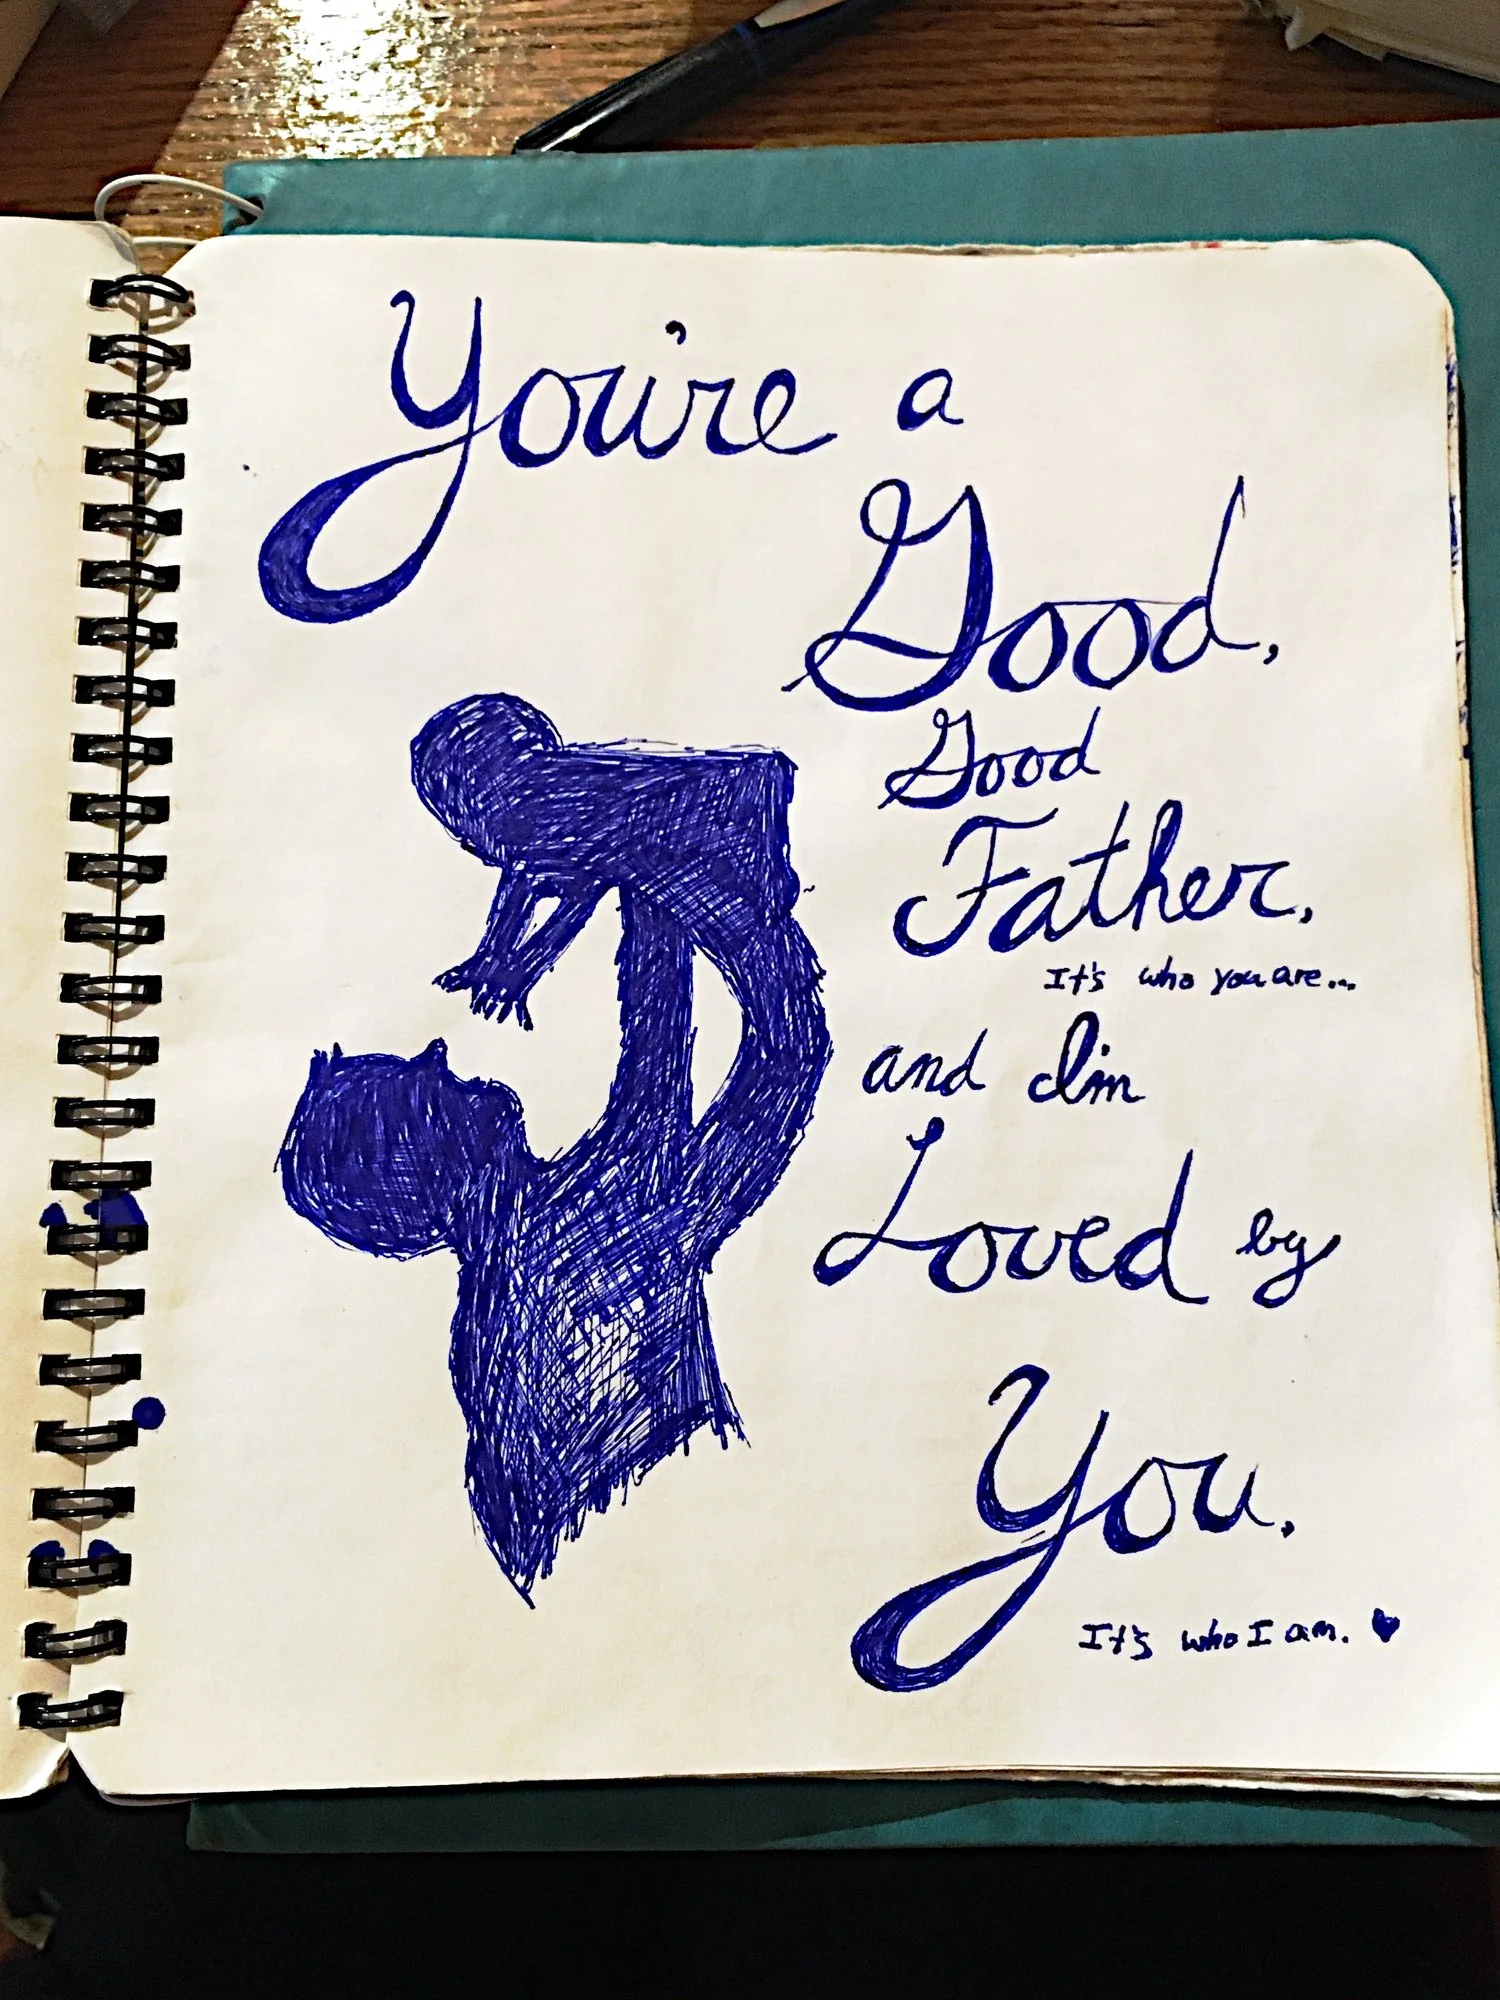 You're a
Good,
Good
Father,
It's who you are...
and I'm
Loved by
You,
It's who I am.